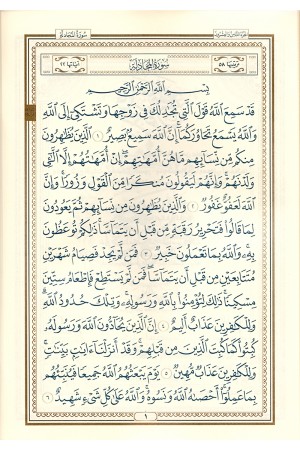 سورة المجادلة
ترتيبها ٥٨
سورة المجادلة
آياتها ٢٢
بِسْمِ اللَّهِ الرَّحْمَٰنِ الرَّحِيمِ
قَدْ سَمِعَ اللَّهُ قَوْلَ الَّتِي تُجَادِلُكَ فِي زَوْجِهَا وَتَشْتَكِي إِلَى اللَّهِ
وَاللَّهُ يَسْمَعُ تَحَاوُرَكُمَا إِنَّ اللَّهَ سَمِيعٌ بَصِيرٌ ١ الَّذِينَ يُظَاهِرُونَ
مِنكُم مِّن نِّسَائِهِم مَّا هُنَّ أُمَّهَاتِهِمْ إِنْ أُمَّهَاتُهُمْ إِلَّا اللَّائِي
وَلَدْنَهُمْ وَإِنَّهُمْ لَيَقُولُونَ مُنكَرًا مِّنَ الْقَوْلِ وَزُورًا وَإِنَّ
اللَّهَ لَعَفُوٌّ غَفُورٌ ٢ وَالَّذِينَ يُظَاهِرُونَ مِن نِّسَائِهِمْ ثُمَّ يَعُودُونَ
لِمَا قَالُوا فَتَحْرِيرُ رَقَبَةٍ مِّن قَبْلِ أَن يَتَمَاسَّا ذَٰلِكُمْ تُوعَظُونَ
بِهِ وَاللَّهُ بِمَا تَعْمَلُونَ خَبِيرٌ ٣ فَمَن لَّمْ يَجِدْ فَصِيَامُ شَهْرَيْنِ
مُتَتَابِعَيْنِ مِن قَبْلِ أَن يَتَمَاسَّا فَمَن لَّمْ يَسْتَطِعْ فَإِطْعَامُ سِتِّينَ
مِسْكِينًا ذَٰلِكَ لِتُؤْمِنُوا بِاللَّهِ وَرَسُولِهِ وَتِلْكَ حُدُودُ اللَّهِ
وَلِلْكَافِرِينَ عَذَابٌ أَلِيمٌ ٤ إِنَّ الَّذِينَ يُحَادُّونَ اللَّهَ وَرَسُولَهُ
كُبِتُوا كَمَا كُبِتَ الَّذِينَ مِن قَبْلِهِمْ وَقَدْ أَنزَلْنَا آيَاتٍ بَيِّنَاتٍ
وَلِلْكَافِرِينَ عَذَابٌ مُّهِينٌ ٥ يَوْمَ يَبْعَثُهُمُ اللَّهُ جَمِيعًا فَيُنَبِّئُهُم
بِمَا عَمِلُوا أَحْصَاهُ اللَّهُ وَنَسُوهُ وَاللَّهُ عَلَىٰ كُلِّ شَيْءٍ شَهِيدٌ ٦
١